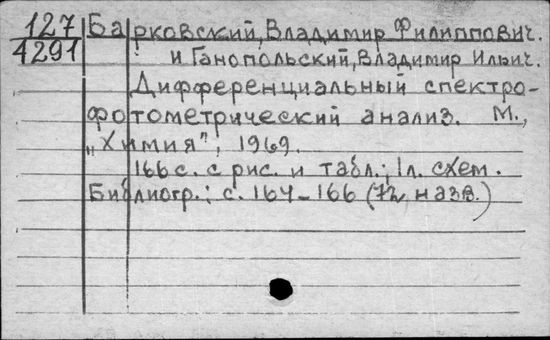 127 Барковский, Владимир Филиппович.
4291 и Ганопольский, Владимир Ильич.
Дифференциальный спектро-
фотометрический анализ. М.,
„Химия", 1969.
166 с. с рис. и табл.; 1 л. схем.
Библиогр.: с. 164-166 (72 назв.)